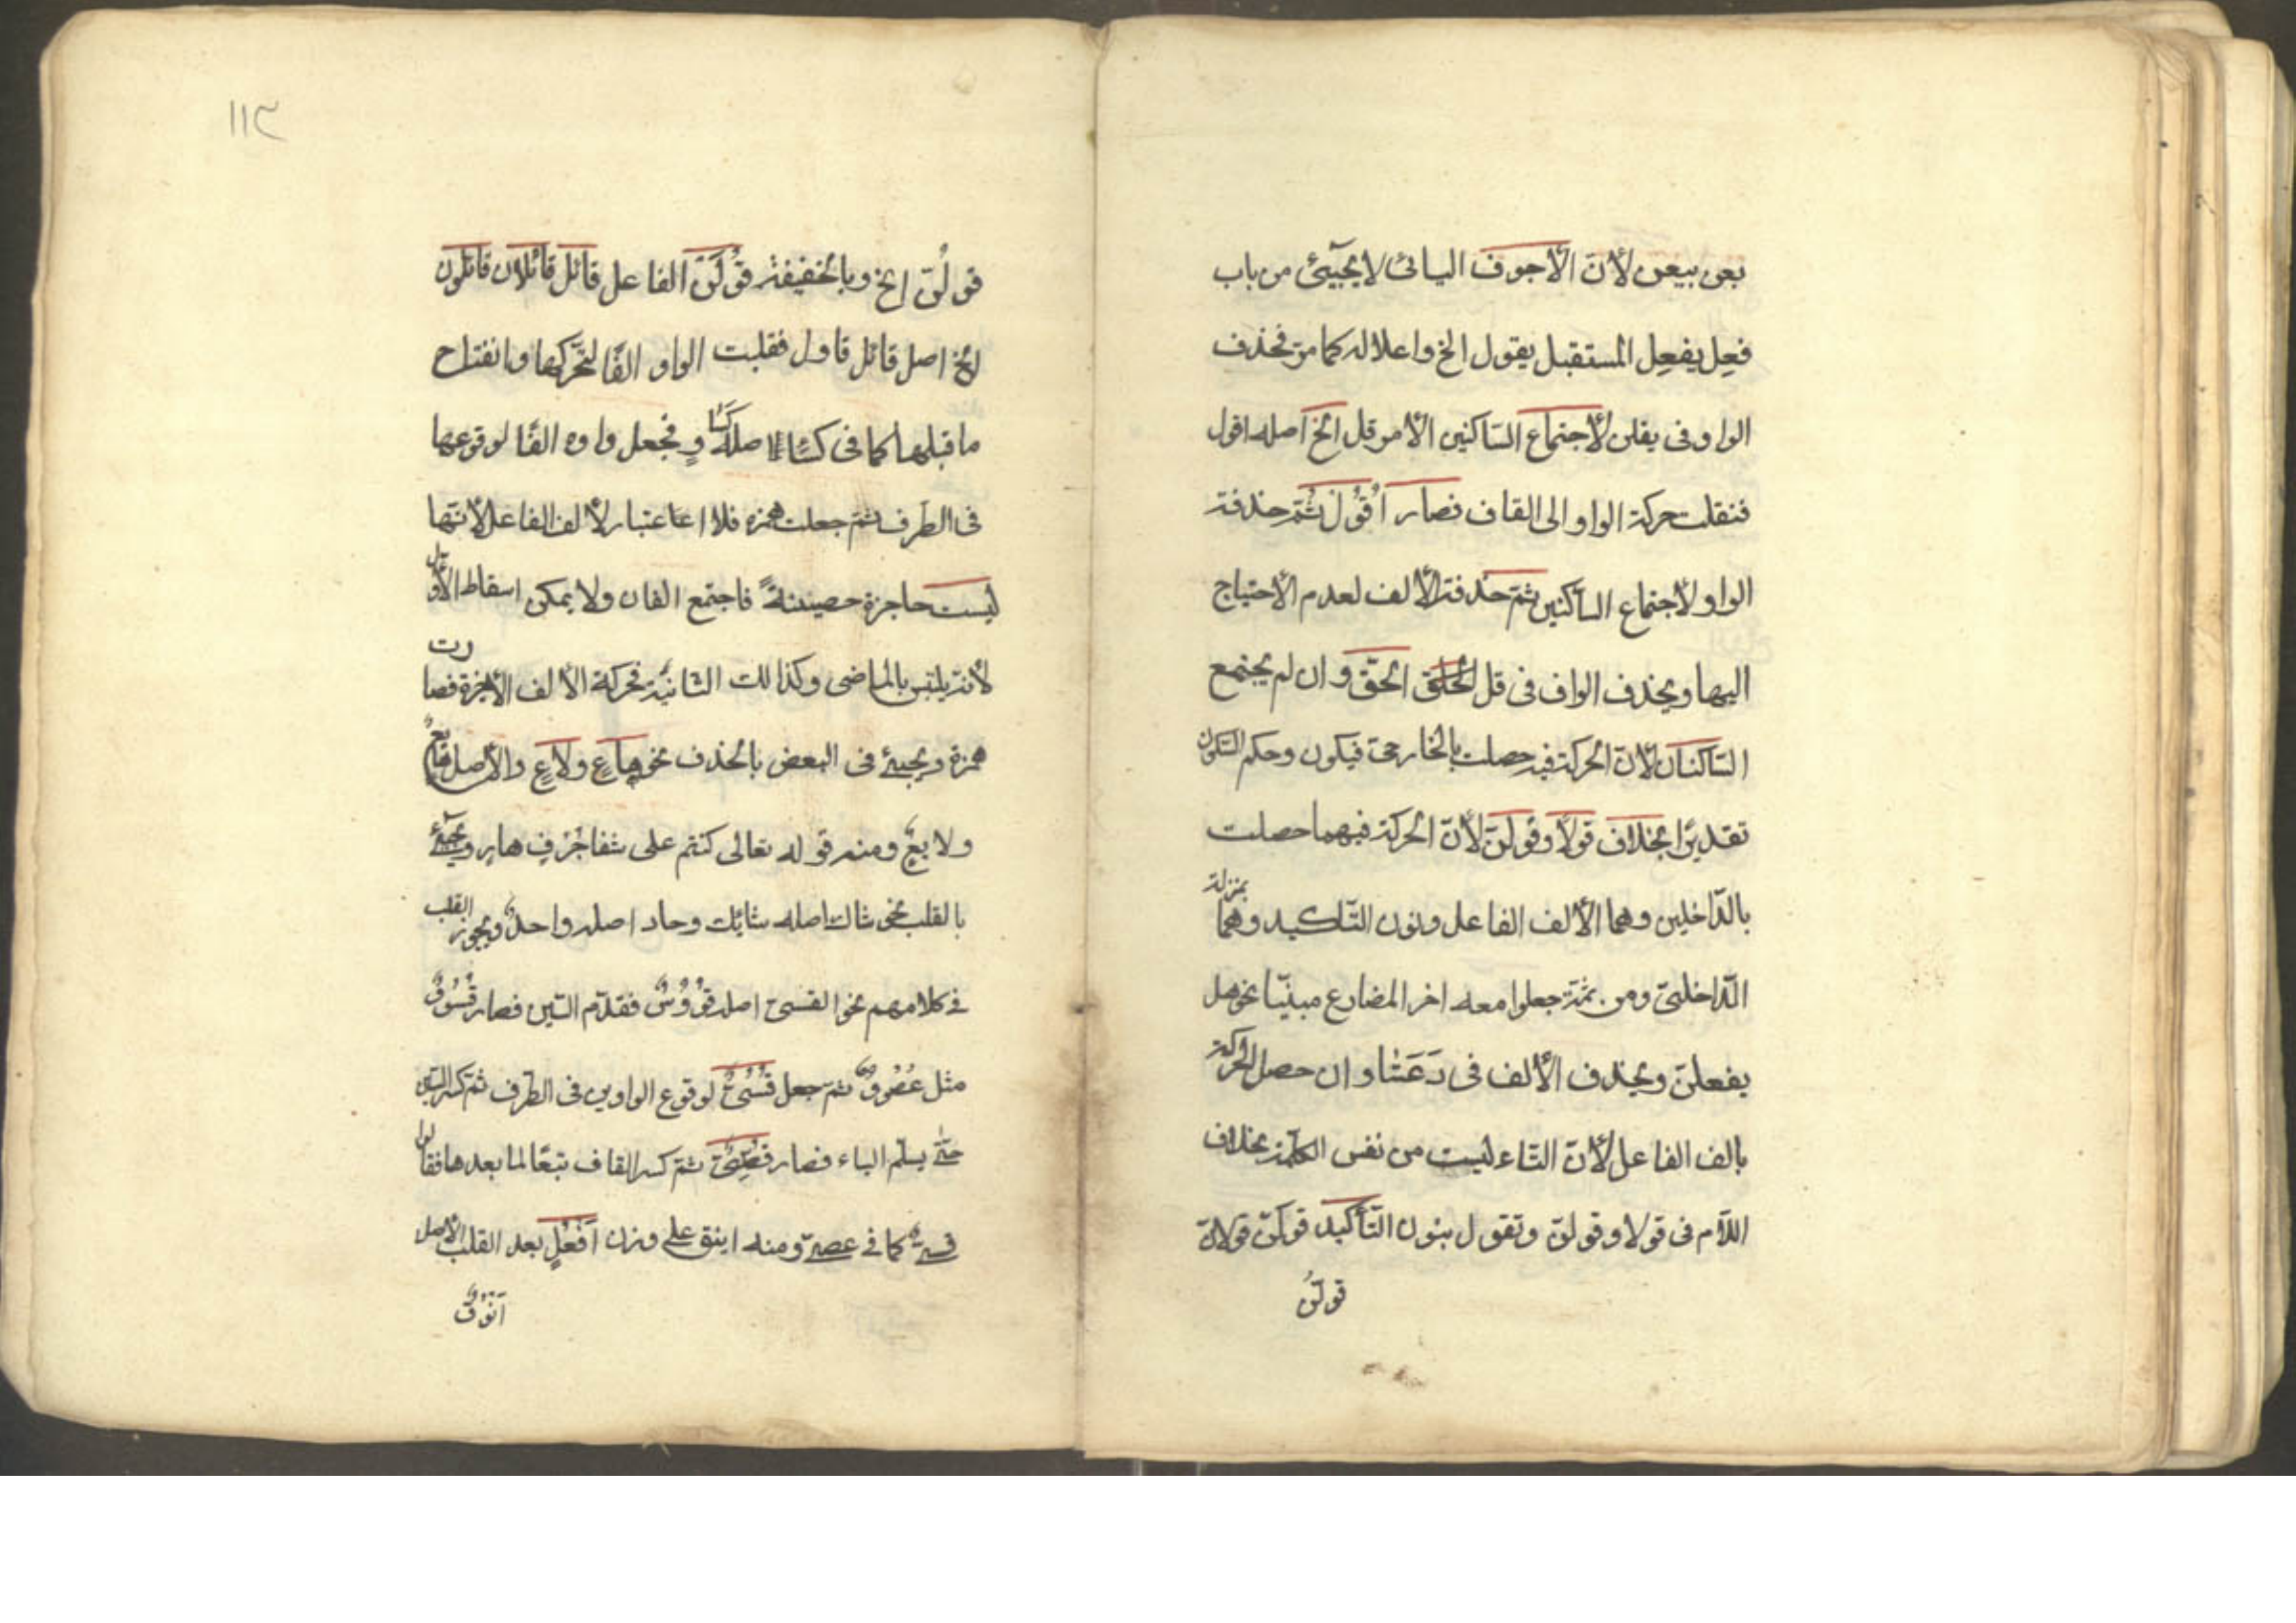 بعن يبعن لأنّ الأجوف اليائى لا يجيئ من باب
فعِل يفعِل المستقبل يقول الخ واعلاله كما مرّ فحذف
الواو فى يقلن لأجتماع السّاكنين الأمر قل الخ اصله اقول
فنقلت حركة الواو الى القاف فصار اُقُول ثُمّ حذفة
الواو لأجتماع الساكنين ثمّ حذفة الألف لعدم الأحتياج
اليها ويحذف الواف فى قل الحقّ وان لم يجتمع
السّاكنان لأنّ الحركة فيه حصلت بالخارجىّ فيكون وحكم السّكون
تقديرًا بخلاف قولاَ وقُولَنّ لأنّ الحركة فيهما حصلت
بالدّاخلين وهما الألف الفاعل ونون التّاكيد وهما بمنزلة
الدّاخلىّ ومن ثمّة جعلوا معه اخر المضارع مبنيّا نحو هل
يفعلنّ ويحذف الألف فى دَعَتَا وان حصل الحركة
بالف الفاعل لأنّ التّاء ليست من نفس الكلمة بخلاف
اللاّم فى قولا وقولنّ وتقول بنون التّأكيد قولَنّ قولانّ
قولُنّ
١١٣
قولُنّ الخ وبالخفيفة قُولَنْ الفاعل قائل قائلان قائلون
الخ اصل قائل قاول فقلبت الواو الفًا لتحَرّكها وانفتاح
ما قبلها كما فى كساء اصله كَسَاوٍ فجعل واوه الفًا لوقوعها
فى الطرف ثمّ جعلت همزه فلا اعتبار لألف الفاعل لأنّها
ليست حاجزة حصينةً فاجتمع الفان ولا يمكن اسقاط الأوّل
لأنّه يلتبس بالماضى وكذالك الثانيّة فحركة الألف الأخيرة فصارت
همزة ويجيئ فى البعض بالحذف نحو هاعٍ ولاعٍ والأصل هايعٌ
ولايعٌ ومنه قوله تعالى كنتم على شفا جُرُفٍ هارٍ ويجيئ
بالقلب نحو شاك اصله شايك وحاد اصله واحدٌ ويجوز القلب
فى كلامهم نحو القسىّ اصله قوُوُسٌ فقدّم السّين فصار قُسُووٌ
مثل عُصُووٌ ثمّ جعل قُسُىٌّ لوقوع الواوين فى الطّرف ثمّ كسر السّين
حتّى يسلّم الياء فصار قُسِىٌّ ثمّ كسر القاف تبعًا لما بعدها فقالوا
قِسىّ كما فى عصىّ ومنه اينق على وزن اَفعُلٍ بعد القلب الأصل
اَنْوُقٌ